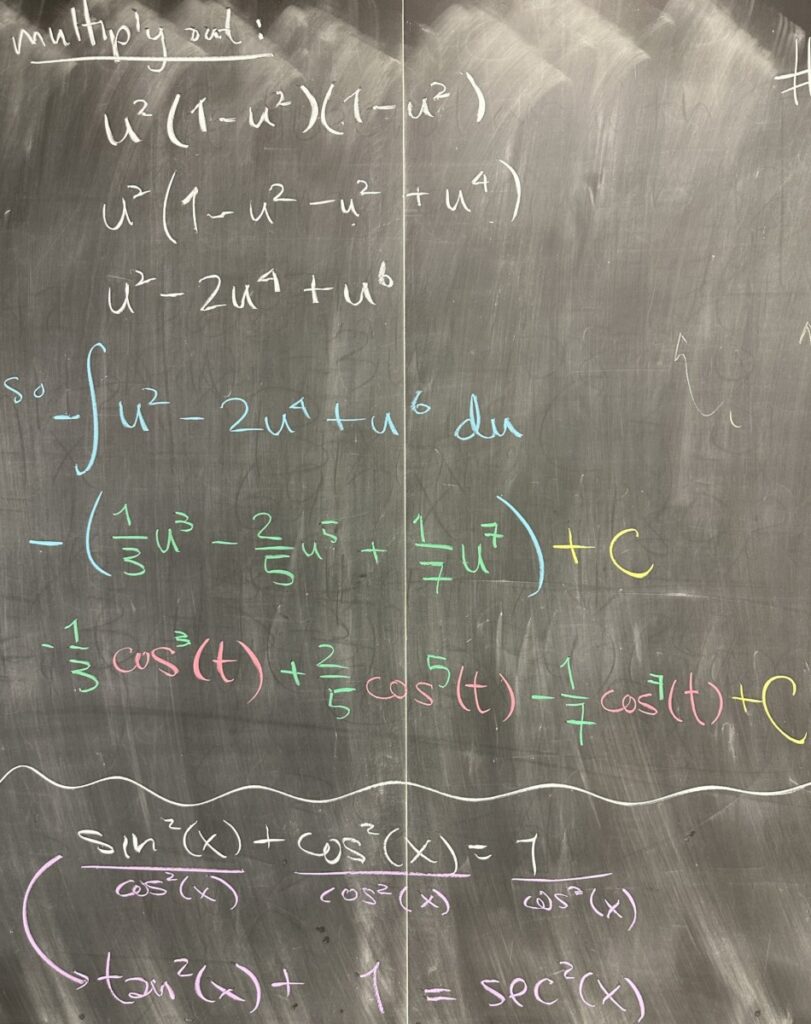 multiply out:
#
u²(1-u²)(1-u²)
u²(1-u²-u²+u⁴)
u²-2u⁴+u⁶
so -∫u²-2u⁴+u⁶ du
-(1/3 u³ - 2/5 u⁵ + 1/7 u⁷) + C
-1/3 cos³(t) + 2/5 cos⁵(t) - 1/7 cos⁷(t) + C
sin²(x)/cos²(x) + cos²(x)/cos²(x) = 1/cos²(x)
tan²(x) + 1 = sec²(x)